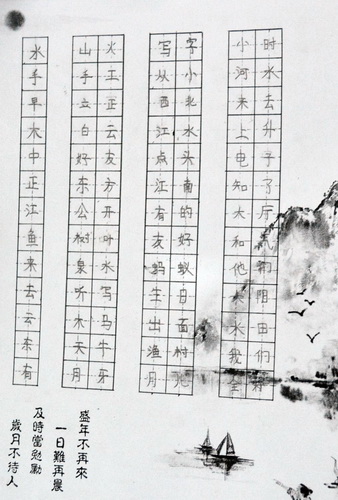 时水去外子了厅气阳田们
小河来上电知大和他水我全
字小北水头南的好蚁日面村
写从西江点江有友蚂生出渔月
火工正云友方开叶水写马牛牙
山手立白好东公树泉听木天月
水手早木中正江鱼来去云东有
盛年不再來
一日難再晨
及時當勉勵
歲月不待人